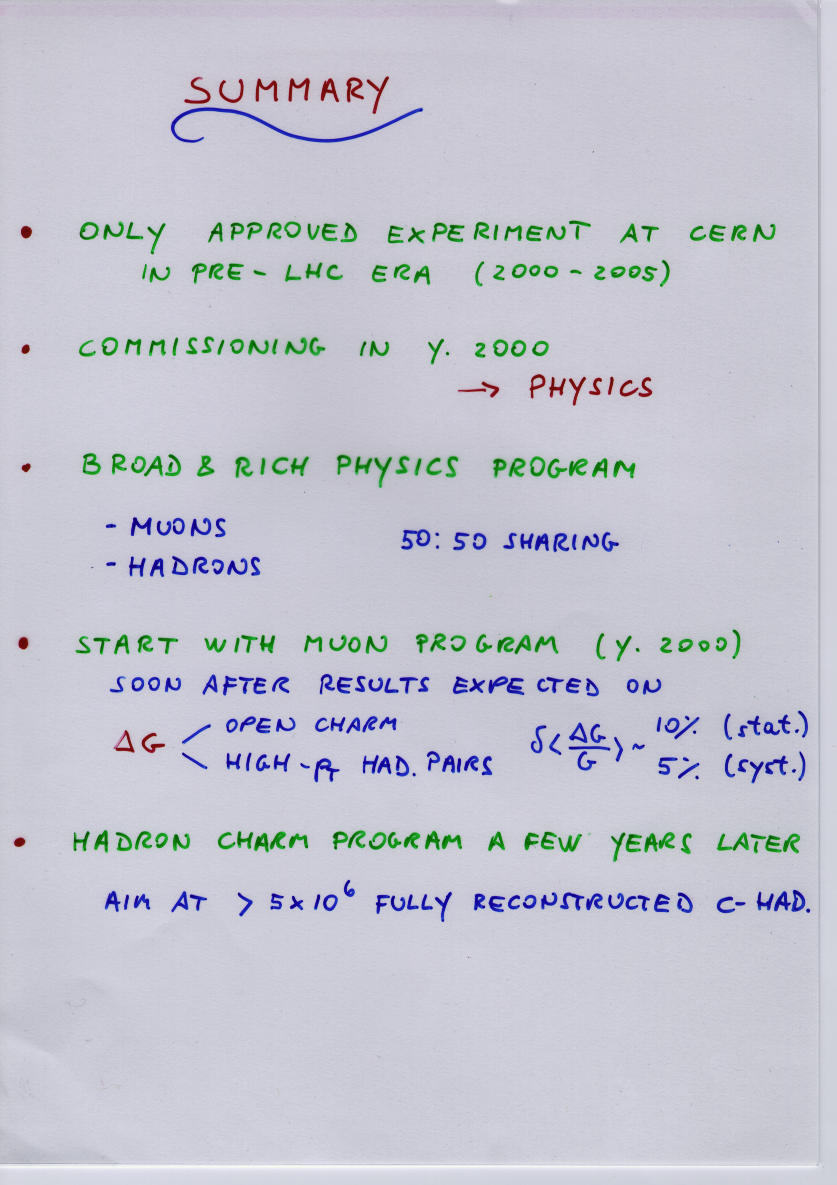 SUMMARY
• ONLY APPROVED EXPERIMENT AT CERN
IN PRE-LHC ERA (2000-2005)
• COMMISSIONING IN Y. 2000
→ PHYSICS
• BROAD & RICH PHYSICS PROGRAM
- MUONS
50:50 SHARING
- HADRONS
• START WITH MUON PROGRAM (Y. 2000)
SOON AFTER RESULTS EXPECTED ON
ΔG < OPEN CHARM
HIGH-pT HAD. PAIRS
δ<ΔG/G> ~ 10% (stat.)
5% (syst.)
• HADRON CHARM PROGRAM A FEW YEARS LATER
AIM AT > 5x10⁶ FULLY RECONSTRUCTED C-HAD.